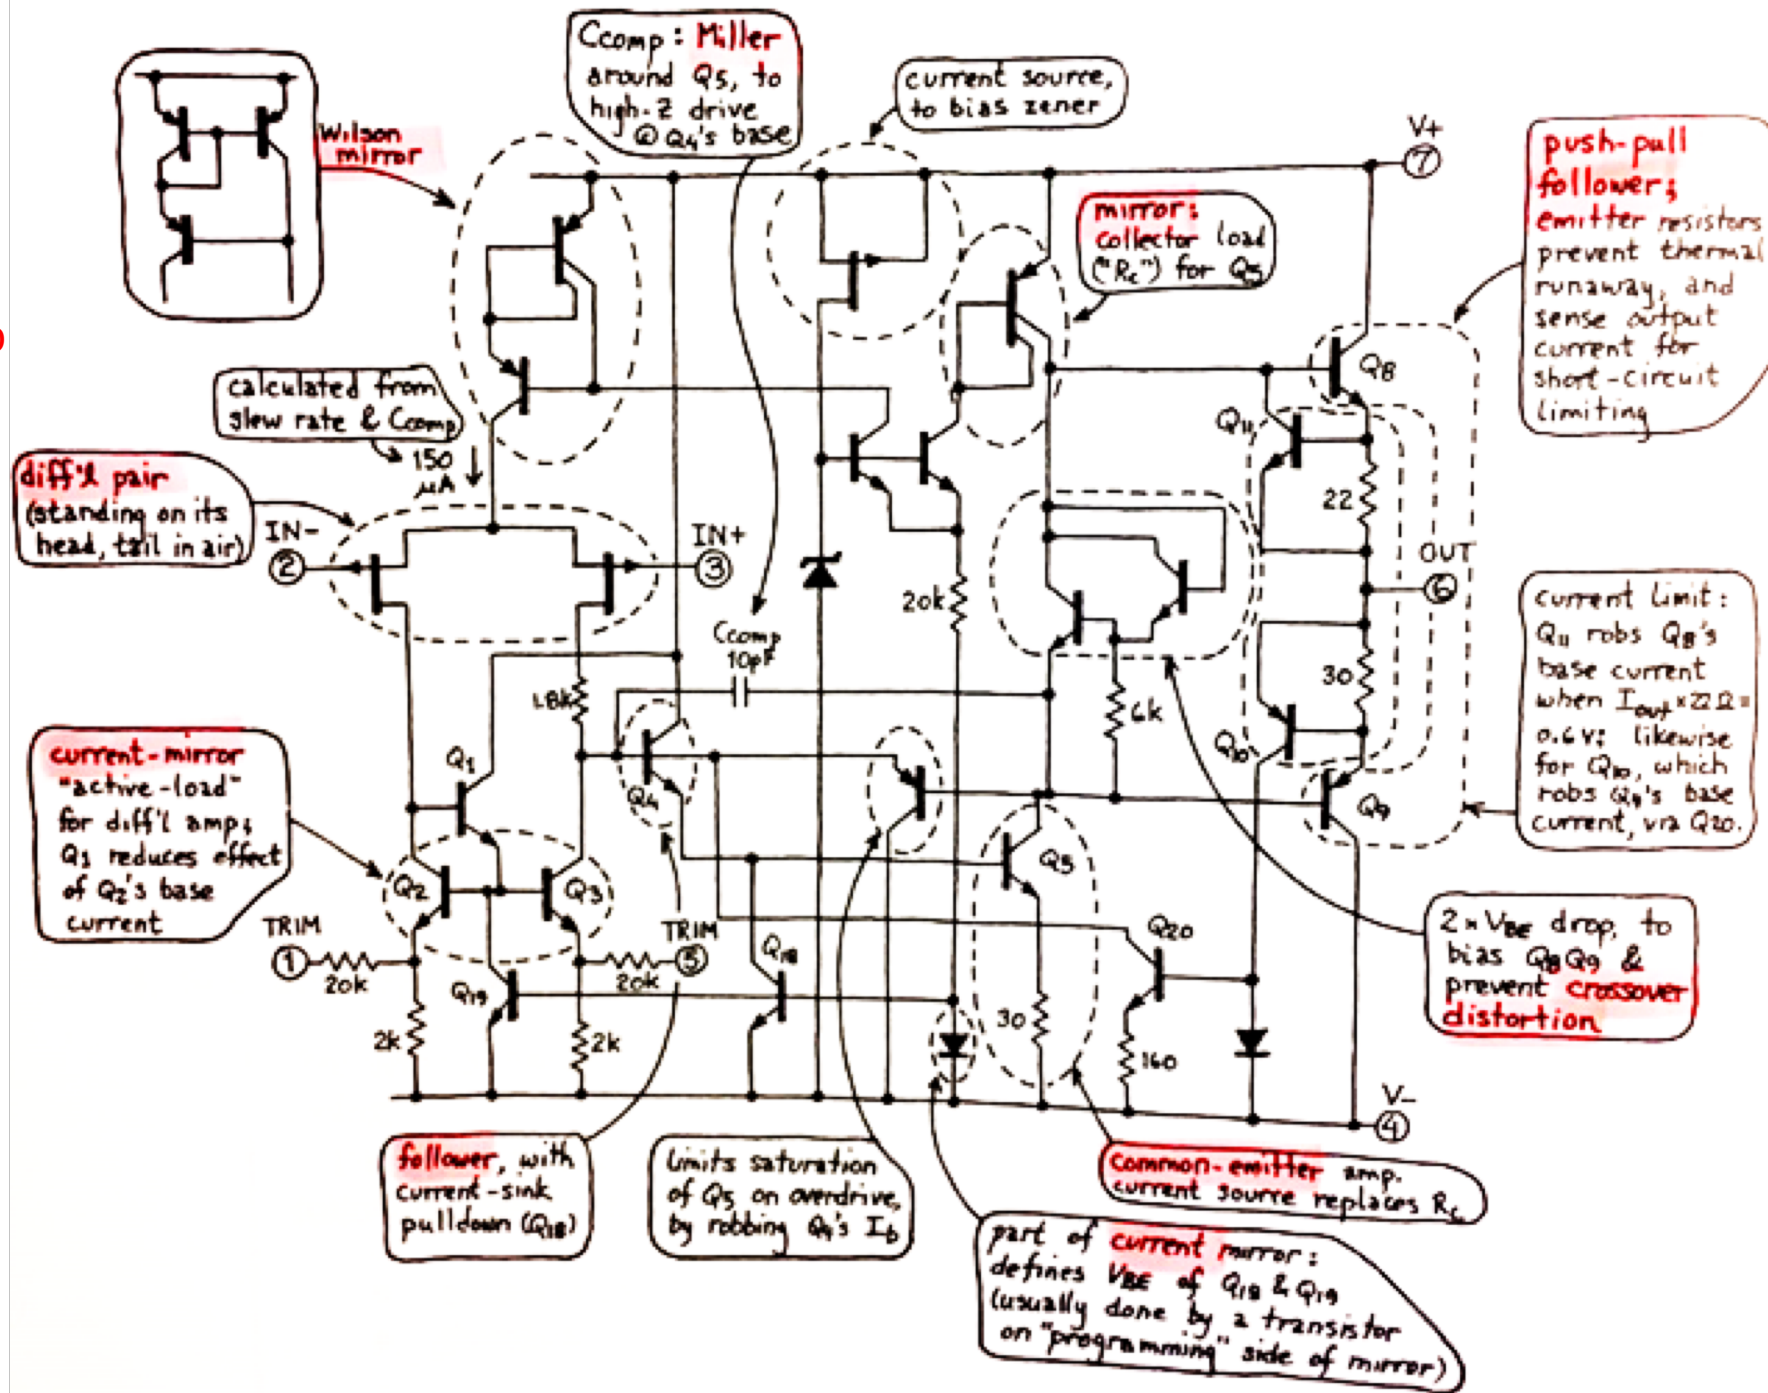 Wilson
mirror
Ccomp: Miller
around Q5, to
high-Z drive
@ Q4's base
current source,
to bias zener
V+
7
mirror:
collector load
("Rc") for Q5
push-pull
follower;
emitter resistors
prevent thermal
runaway, and
sense output
current for
short-circuit
limiting
calculated from
slew rate & Ccomp
150
µA
diff'l pair
(standing on its
head, tail in air)
IN-
2
IN+
3
Q8
Q11
22
OUT
6
20k
Ccomp
10pF
1.8k
6k
30
Q10
Q9
current limit:
Q11 robs Q8's
base current
when Iout×22Ω=
0.6V; likewise
for Q10, which
robs Q9's base
current, via Q20.
current-mirror
"active-load"
for diff'l amp;
Q1 reduces effect
of Q2's base
current
Q1
Q4
Q2
Q3
Q5
TRIM
1
20k
TRIM
5
20k
Q19
Q18
Q20
2k
2k
30
160
2×VBE drop, to
bias Q8Q9 &
prevent crossover
distortion
V-
4
follower, with
current-sink
pulldown (Q18)
limits saturation
of Q5 on overdrive,
by robbing Q4's Ib
common-emitter amp.
current source replaces Rc
part of current mirror:
defines VBE of Q18 & Q19
(usually done by a transistor
on "programming" side of mirror)